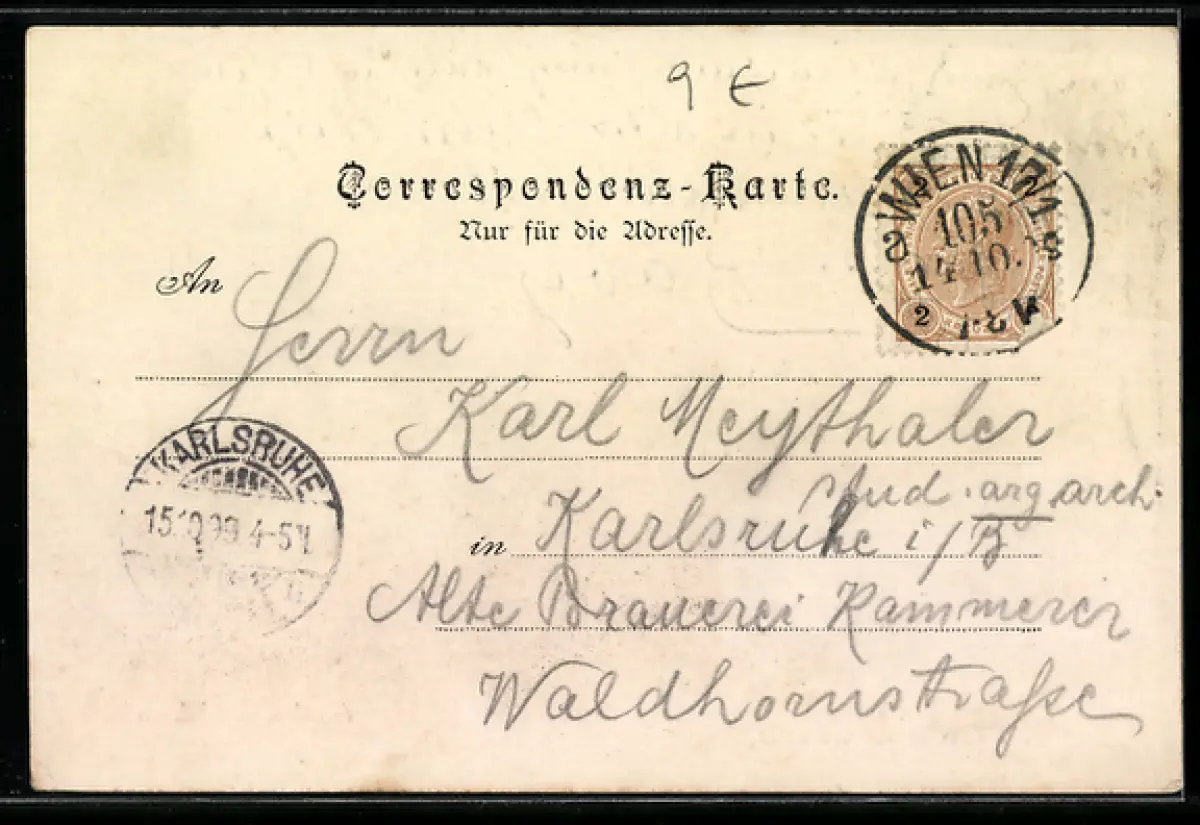 9 €
Correspondenz-Karte.
Nur für die Adresse.
WIEN 17/1
105
14 10.
2 2
2
An
Herrn
Karl Meythaler
stud. arg. arch.
in Karlsruhe i/B
Alte Brauerei Kammerer
Waldhornstraße
KARLSRUHE
15.10.99.4-5N